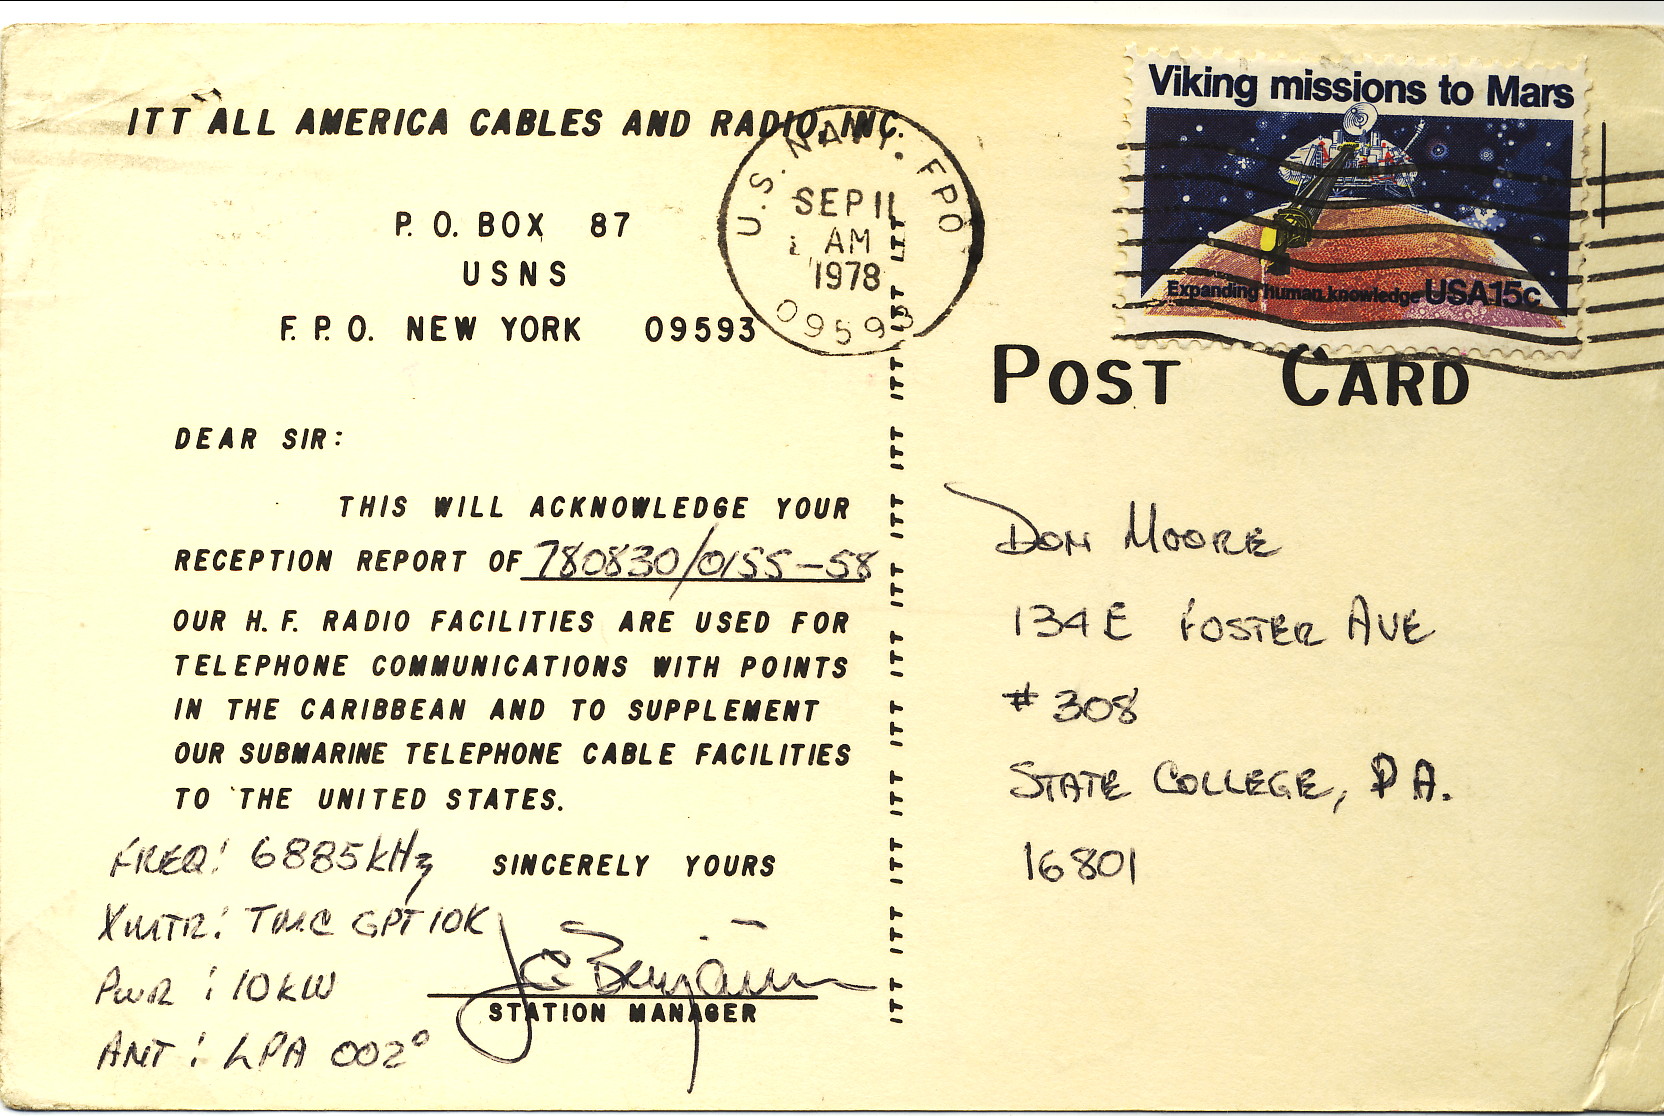 ITT ALL AMERICA CABLES AND RADIO, INC.
P. O. BOX 87
USNS
F. P. O. NEW YORK 09593
U.S. NAVY. FPO
SEP 11
AM
1978
09593
Viking missions to Mars
Expanding human knowledge USA 15c
POST CARD
DEAR SIR:
THIS WILL ACKNOWLEDGE YOUR
RECEPTION REPORT OF 780830/0155-58
OUR H. F. RADIO FACILITIES ARE USED FOR
TELEPHONE COMMUNICATIONS WITH POINTS
IN THE CARIBBEAN AND TO SUPPLEMENT
OUR SUBMARINE TELEPHONE CABLE FACILITIES
TO THE UNITED STATES.
SINCERELY YOURS
FREQ: 6885kHz
XMTR: TMC GPT10K
PWR : 10KW
ANT : LPA 002°
J C Benjamin
STATION MANAGER
ITT ITT ITT ITT ITT ITT ITT ITT ITT ITT ITT ITT ITT
DON MOORE
134 E FOSTER AVE
# 308
STATE COLLEGE, PA.
16801